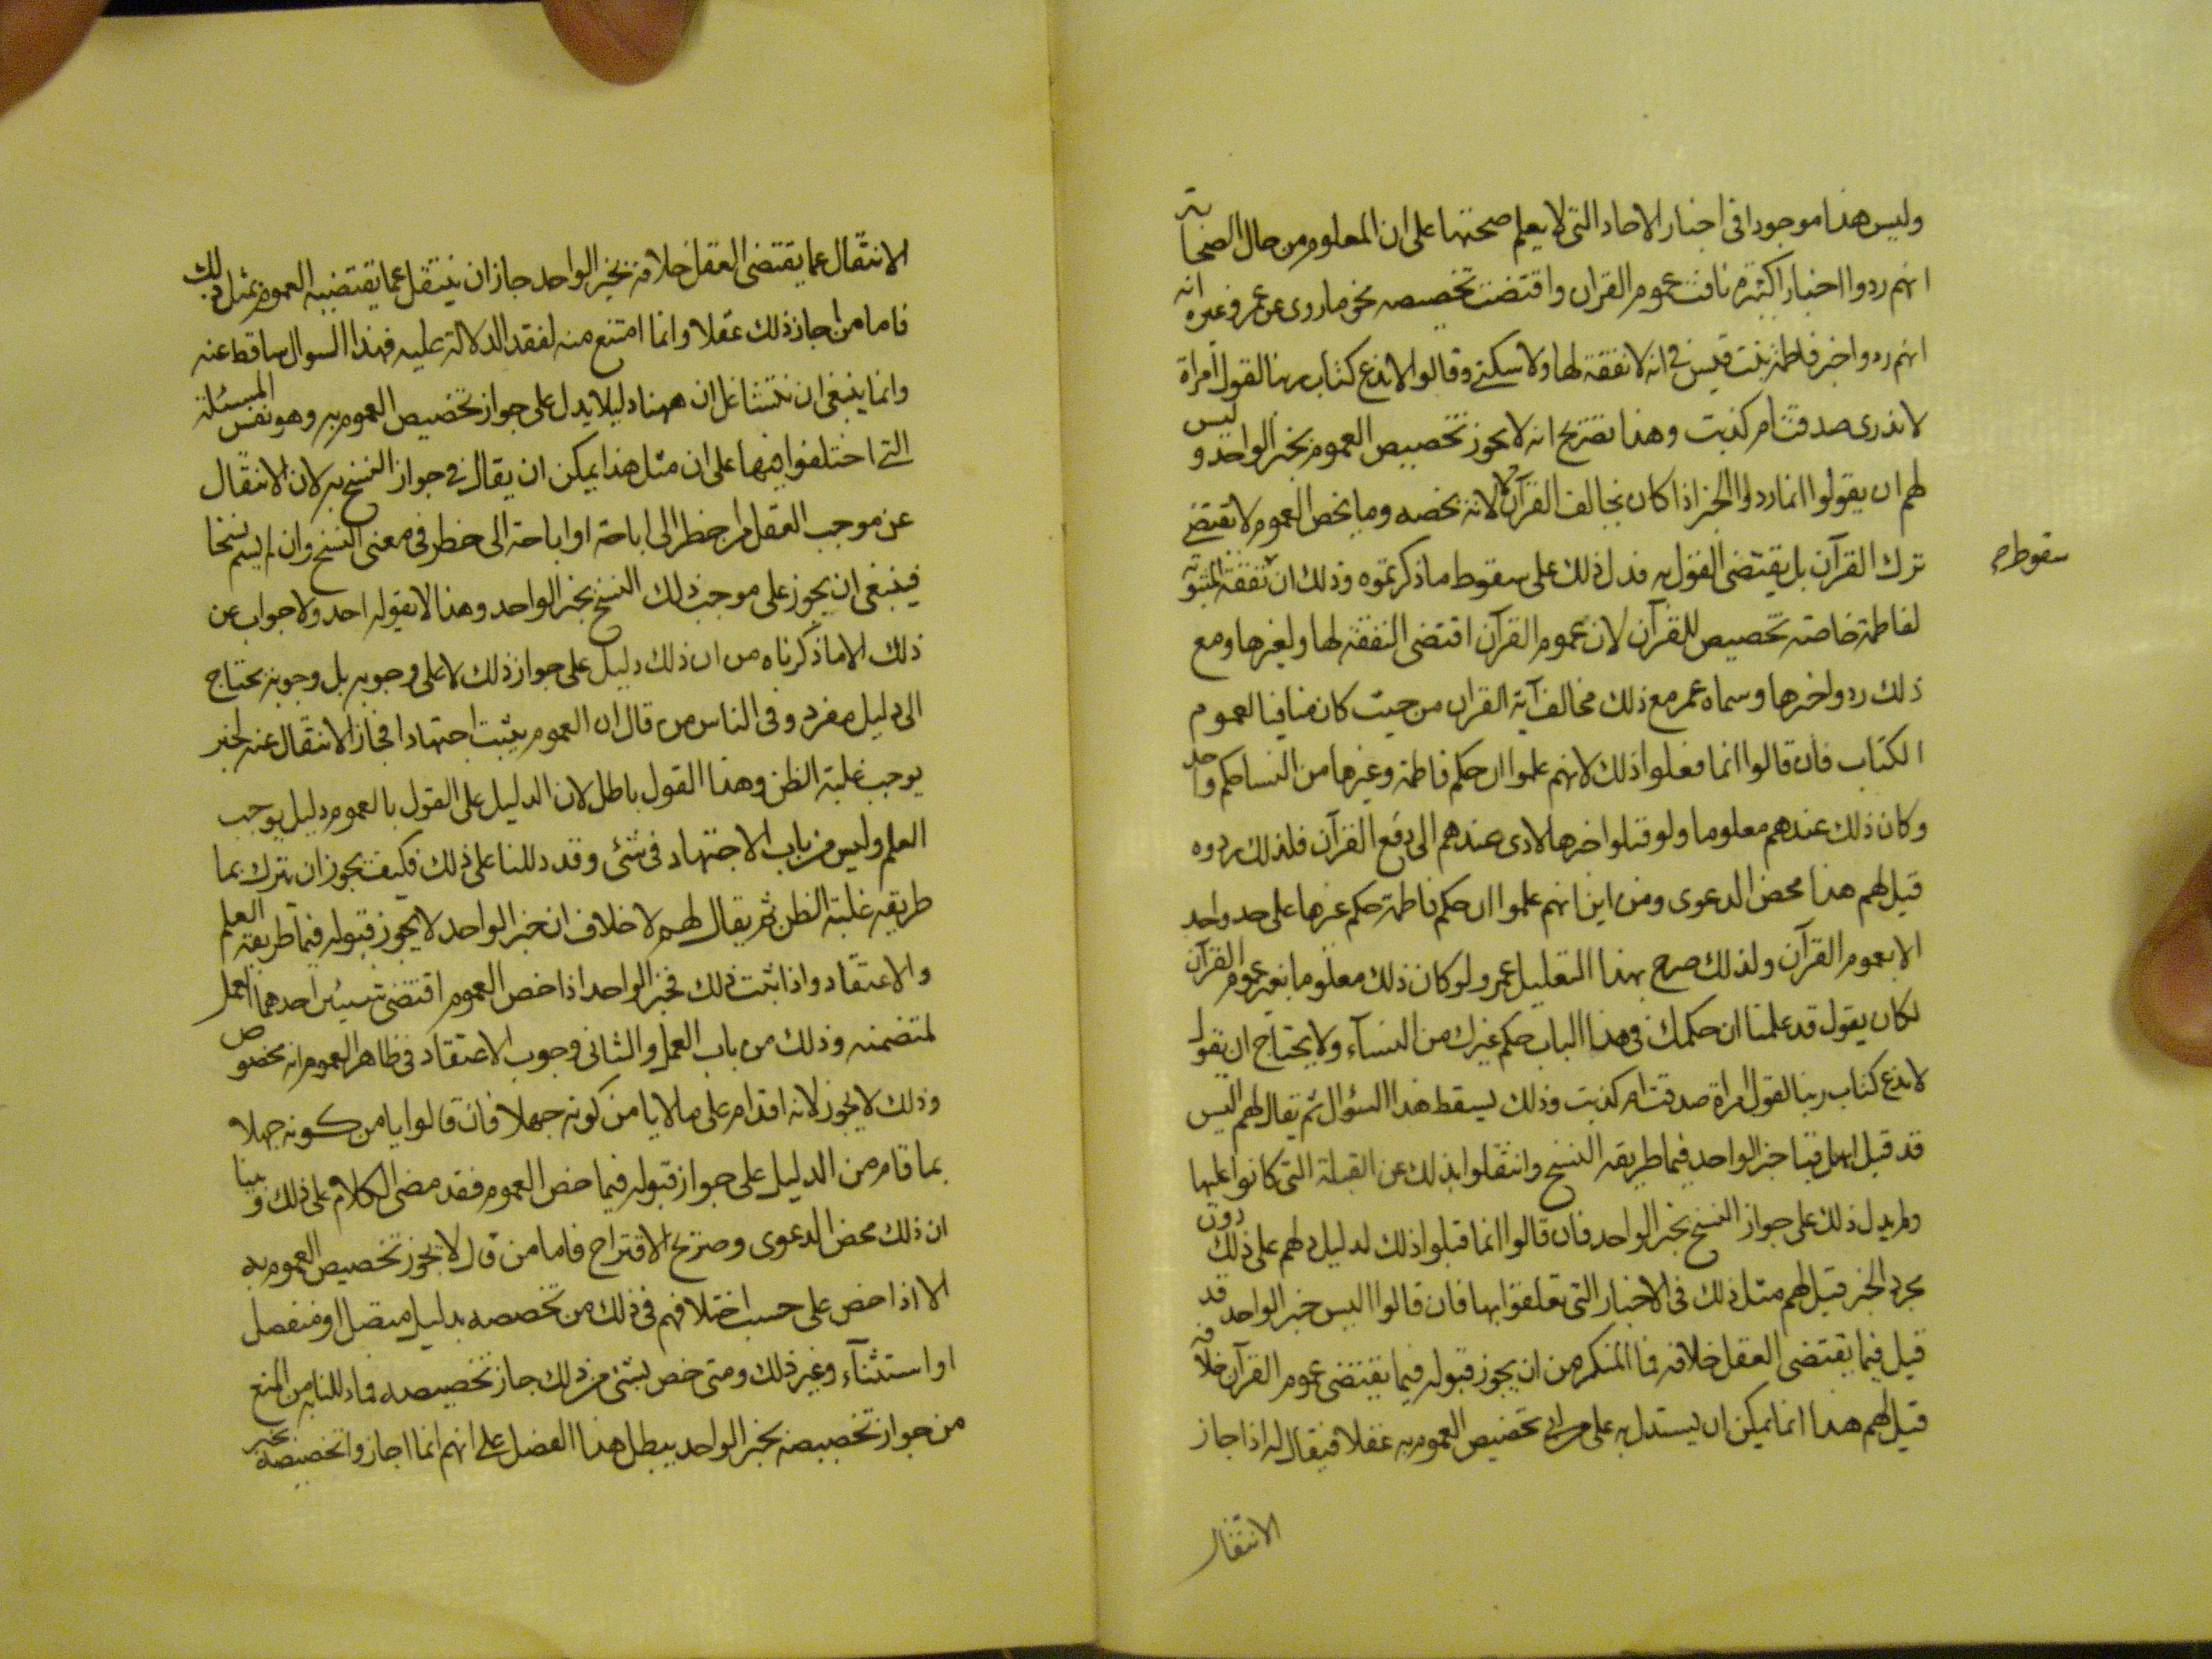 وليس هذا موجودا فى اخبار الاحاد التى لا يعلم صحتها على ان المعلوم من حال الصحابة
انهم ردوا اخبار اكثيرة نافت عموم القران واقتضت تخصيصه نحو ما روى عن عمر وغيره انه
انهم ردوا خبر فاطمة بنت قيس فى انه لا نفقة لها ولا سكنى وقالوا لا ندع كتاب ربنا لقول امراة
لا ندرى صدقت ام كذبت وهذا تصريح انه لا يجوز تخصيص العموم بخبر الواحد وليس
لهم ان يقولوا انما ردوا الخبر اذا كان يخالف القرآن لا لانه يخصه وما يخص العموم لا يقتضى
ترك القرآن بل يقتضى القول به فدل ذلك على سقوط ما ذكرتموه وذلك ان نفقة المبتوتة
سقوط م
لفاطمة خاصة تخصيص للقرآن لان عموم القرآن اقتضى النفقة لها ولغيرها ومع
ذلك ردوا خبرها وسماه عمر مع ذلك مخالف آية القران من حيث كان منافيا لعموم
الكتاب فان قالوا انما فعلوا ذلك لانهم علموا ان حكم فاطمة وغيرها من النسا حكم واحد
وكان ذلك عندهم معلوما ولو قبلوا خبرها لادى عندهم الى دفع القرآن فلذلك ردوه
قيل لهم هذا محض الدعوى ومن اين انهم علموا ان حكم فاطمة حكم غيرها على حد واحد
الا بعموم القرآن ولذلك صرح بهذا التعليل عمر ولو كان ذلك معلوما بغير عموم القرآن
لكان يقول قد علمنا ان حكمك فى هذا الباب حكم غيرك من النسآء ولا يحتاج ان يقول
لا ندع كتاب ربنا لقول امراة صدقت ام كذبت وذلك يسقط هذا السؤال ثم يقال لهم اليس
قد قبل اهل قبا خبر الواحد فيما طريقه النسخ وانتقلوا بذلك عن القبلة التى كانوا عليها
ولم يدل ذلك على جواز النسخ بخبر الواحد فان قالوا انما قبلوا ذلك لدليل دلهم على ذلك دون
مجرد الخبر قيل لهم مثل ذلك فى الاخبار التى تعلقوا بها فان قالوا اليس خبر الواحد قد
قبل فيما يقتضى العقل خلافه فما المنكر من ان يجوز قبوله فيما يقتضى عموم القرآن خلافه
قيل لهم هذا انما يمكن ان يستدل به على جواز تخصيص العموم به عقلا فيقال له اذا جاز
الانتقال
الانتقال عما يقتضى العقل خلافه بخبر الواحد جاز ان ينتقل عما يقتضيه العموم بمثل ذلك
فاما من اجاز ذلك عقلا وانما امتنع منه لفقد الدلالة عليه فهذا السوال ساقط عنه
وانما ينبغى ان نتشاغل ان ههنا دليلا يدل على جواز تخصيص العموم به وهو نفس المسئلة
التى اختلفوا فيها على ان مثل هذا يمكن ان يقال فى جواز النسخ به لان الانتقال
عن موجب العقل من حظر الى اباحة او اباحة الى حظر فى معنى النسخ وان لم يسم نسخا
فينبغى ان يجوز على موجب ذلك النسخ بخبر الواحد وهذا لا يقوله احد ولا جواب عن
ذلك الا ما ذكرناه من ان ذلك دليل على جواز ذلك لا على وجوبه بل وجوبه يحتاج
الى دليل مفرد وفى الناس من قال ان العموم يثبت اجتهادا فجاز الانتقال عنه لخبر
يوجب غلبة الظن وهذا القول باطل لان الدليل على القول بالعموم دليل يوجب
العلم وليس من باب الاجتهاد فى شئى وقد دللنا على ذلك فكيف يجوز ان يترك بما
طريقه غلبة الظن ثم يقال لهم لا خلاف ان خبر الواحد لا يجوز قبوله فيما طريقه العلم
والاعتقاد واذا ثبت ذلك فخبر الواحد اذا خص العموم اقتضى شيئين احدهما العمل
لمتضمنه وذلك من باب العمل والثانى وجوب الاعتقاد فى ظاهر العموم انه مخصوص
وذلك لا يجوز لانه اقدام على ما لا يامن كونه جهلا فان قالوا يامن كونه جهلا
بما قام من الدليل على جواز قبوله فيما خص العموم فقد مضى الكلام على ذلك وبينا
ان ذلك محض الدعوى وصريح الاقتراح فاما من قال لا يجوز تخصيص العموم به
الا اذا خص على حسب اختلافهم فى ذلك من تخصصه بدليل متصل او منفصل
او استثنآء وغير ذلك ومتى خص بشئى من ذلك جاز تخصيصه فما دللنا به من المنع
من جواز تخصيصه بخبر الواحد يبطل هذا الفصل على انهم انما اجازوا تخصيصه بخبر